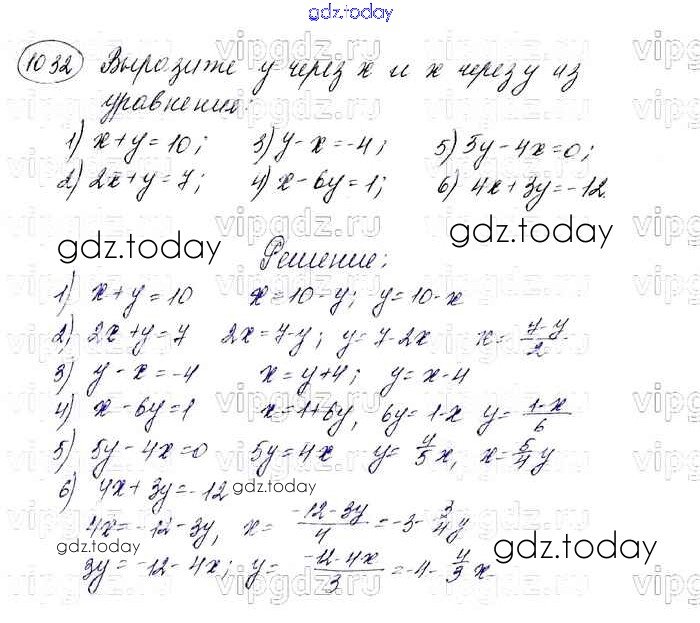 gdz.today
1032 Выразите y через x и x через y из
уравнения:
1) x+y=10; 3) y-x=-4; 5) 5y-4x=0;
2) 2x+y=7; 4) x-6y=1; 6) 4x+3y=-12.
gdz.today
gdz.today
Решение:
1) x+y=10 x=10-y; y=10-x
2) 2x+y=7 2x=7-y; y=7-2x x=\frac{7-y}{2}
3) y-x=-4 x=y+4; y=x-4
4) x-6y=1 x=1+6y, 6y=1-x y=\frac{1-x}{6}
5) 5y-4x=0 5y=4x y=\frac{4}{5}x, x=\frac{5}{4}y
6) 4x+3y=-12
gdz.today
4x=-12-3y, x=\frac{-12-3y}{4}=-3-\frac{3}{4}y
gdz.today
gdz.today
3y=-12-4x; y=\frac{-12-4x}{3}=-4-\frac{4}{3}x